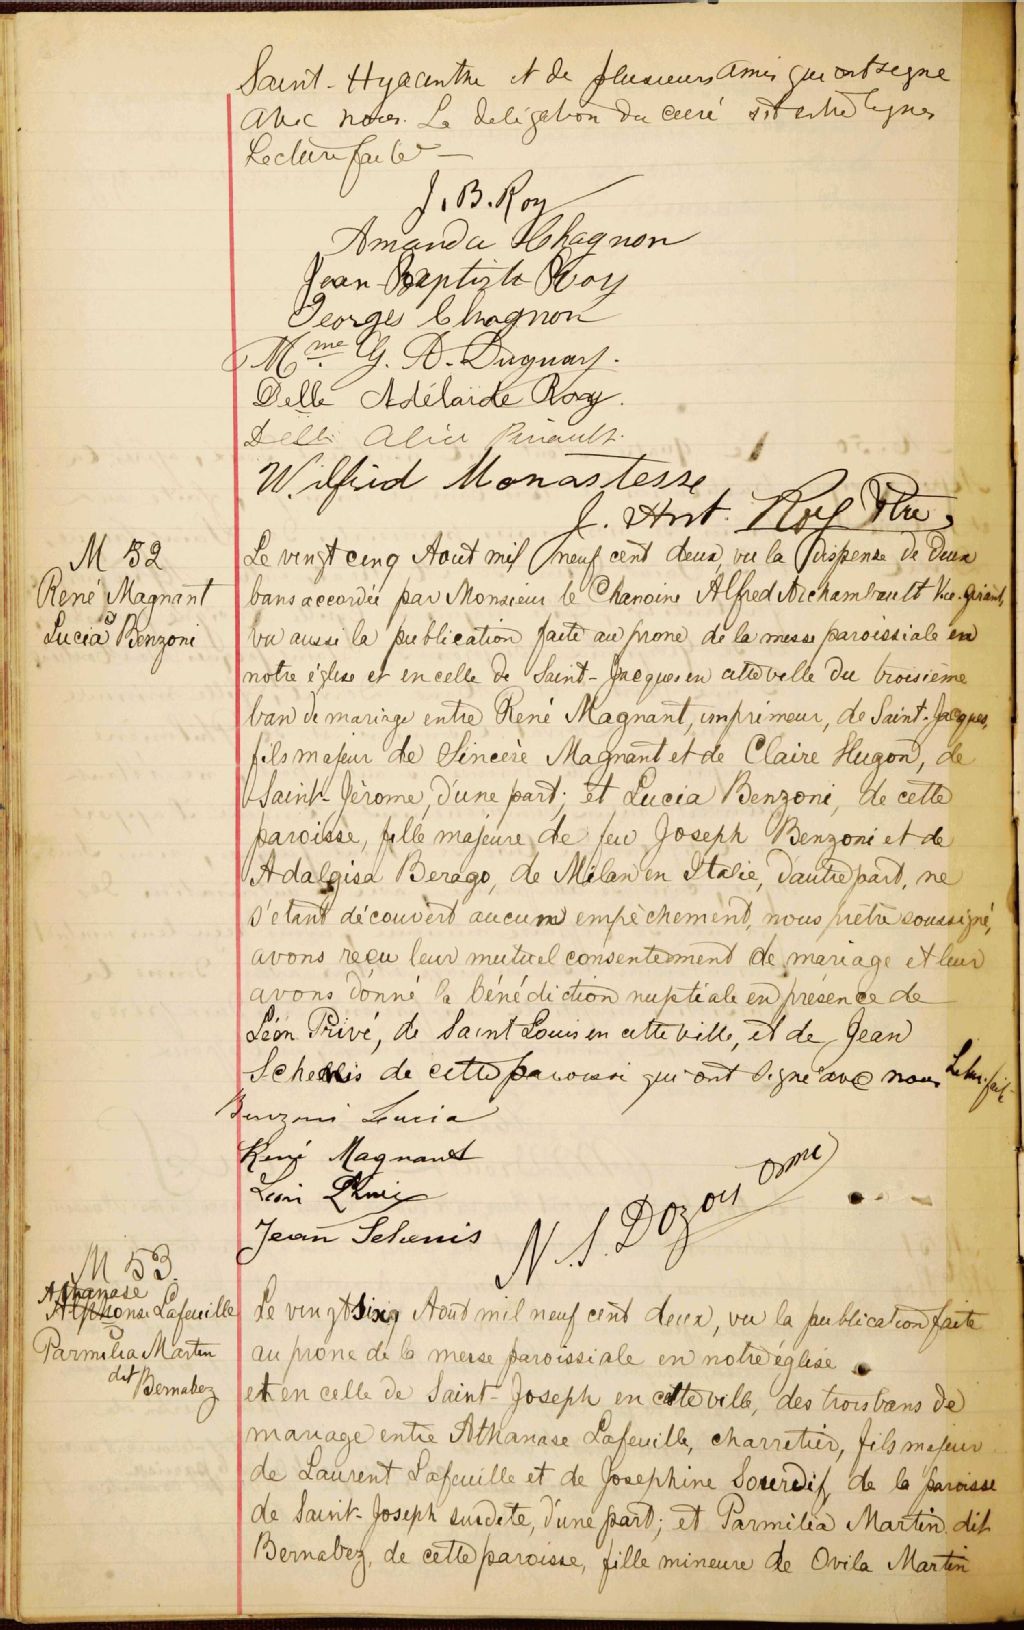 Saint-Hyacinthe et de plusieurs amis qui ont signé
avec nous. La déligation du curé sit entre lignes
Lecture faite —
J. B. Roy
Amanda Chagnon
Jean-Baptiste Roy
Georges Chagnon
Mme G. A. Duguay.
Delle Adélaïde Roy.
Delle Alice Pinault.
Wilfrid Monastesse
J. Ant. Roy Ptre.
M 52
René Magnant
&
Lucia Benzoni
Le vingt cinq Aout mil neuf cent deux, vu la dispense de deux
bans accordée par Monsieur le Chanoine Alfred Archambault Vic-gérant,
vu aussi la publication faite au prone de la messe paroissiale en
notre église et en celle de Saint-Jacques en cette ville du troisième
ban de mariage entre René Magnant, imprimeur, de Saint-Jacques,
fils majeur de Sincère Magnant et de Claire Hugon, de
Saint-Jérome, d'une part; et Lucia Benzoni, de cette
paroisse, fille majeure de feu Joseph Benzoni et de
Adalgisa Berago, de Milan en Italie, d'autre part, ne
s'étant découvert aucun empêchement, nous prêtre soussigné,
avons reçu leur mutuel consentement de mariage et leur
avons donné la bénédiction nuptiale en présence de
Léon Privé, de Saint Louis en cette ville, et de Jean
Schenis de cette paroisse qui ont signé avec nous Lect. faite
Benzoni Lucia
René Magnant
Léon Privé
Jean Schenis
N. S. Dozois omi
M 53.
Athanase
Alphonse Lafeuille
&
Parmilia Martin
dit
Bernabez
Le vingt six Aout mil neuf cent deux, vu la publication faite
au prone de la messe paroissiale en notre église
et en celle de Saint-Joseph en cette ville, des trois bans de
mariage entre Athanase Lafeuille, charretier, fils majeur
de Laurent Lafeuille et de Josephine Sourdif, de la paroisse
de Saint-Joseph susdite, d'une part; et Parmilia Martin dit
Bernabez, de cette paroisse, fille mineure de Ovila Martin